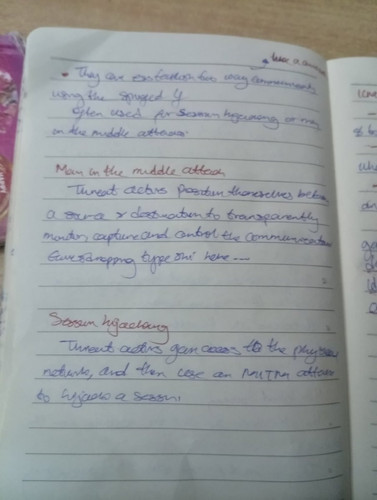 • They can establish two way communicat
using the spoofed IP
Often used for session hijacking or man
in the middle attacks
Man in the middle attack
Threat actors position themselves between
a source & destination to transparently
monitor, capture and control the communication
Eavesdropping type shi' here ---
Session hijacking
Threat actors gain access to the physical
network, and then use an MITM attack
to hijack a session.